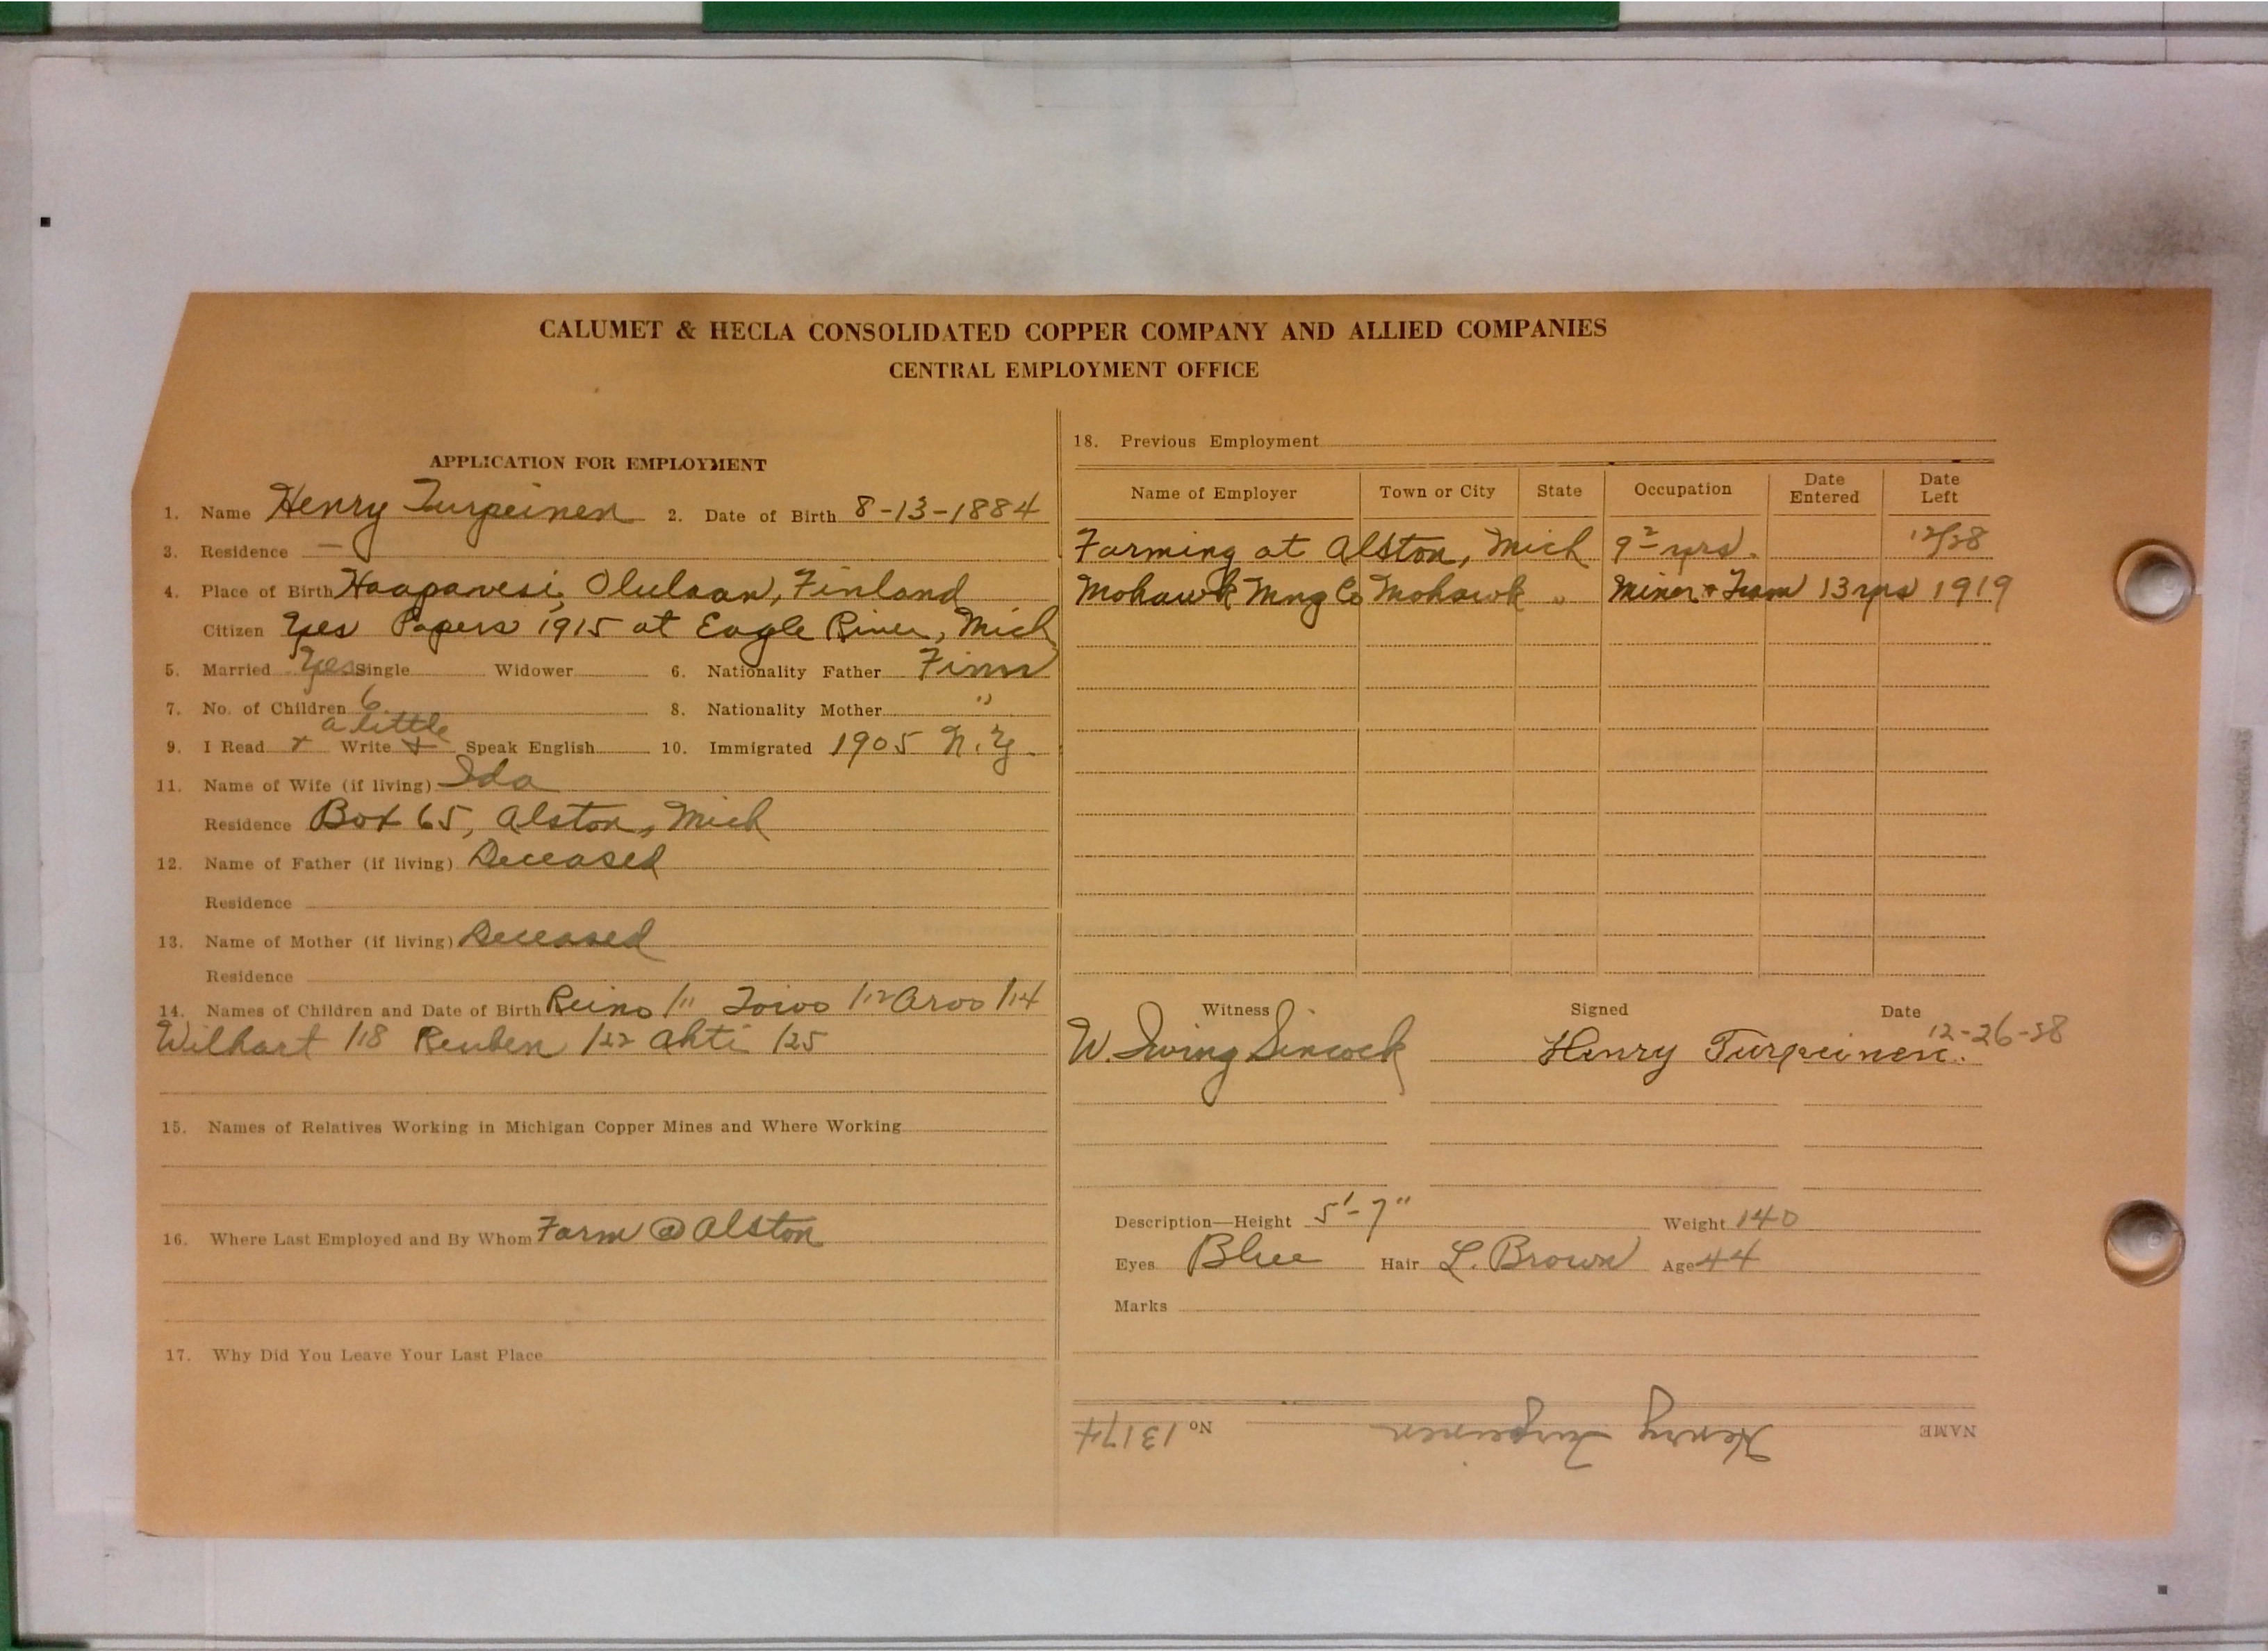 CALUMET & HECLA CONSOLIDATED COPPER COMPANY AND ALLIED COMPANIES
CENTRAL EMPLOYMENT OFFICE
APPLICATION FOR EMPLOYMENT
1. Name Henry Turpeinen 2. Date of Birth 8-13-1884
3. Residence —
4. Place of Birth Haapavesi, Olulaan, Finland
Citizen Yes Papers 1915 at Eagle River, Mich
5. Married Yes Single Widower 6. Nationality Father Finn
7. No. of Children 6 8. Nationality Mother "
a little
9. I Read Write + Speak English 10. Immigrated 1905 N.Y.
11. Name of Wife (if living) Ida
Residence Box 65, Alston, Mich
12. Name of Father (if living) Deceased
Residence
13. Name of Mother (if living) Deceased
Residence
14. Names of Children and Date of Birth Reino /11 Toivo /12 Arvo /14
Wilhart /18 Reuben /22 Ahti /25
15. Names of Relatives Working in Michigan Copper Mines and Where Working
16. Where Last Employed and By Whom Farm @ Alston
17. Why Did You Leave Your Last Place
18. Previous Employment
Name of Employer Town or City State Occupation Date Entered Date Left
Farming at Alston, Mich 9 yrs. 12/28
Mohawk Mng Co Mohawk " Miner & Tram 13 yrs 1919
Witness Signed Date
W. Irving Sincock Henry Turpeinen. 12-26-28
Description—Height 5'-7" Weight 140
Eyes Blue Hair L. Brown Age 44
Marks
NAME Henry Turpeinen No 13174